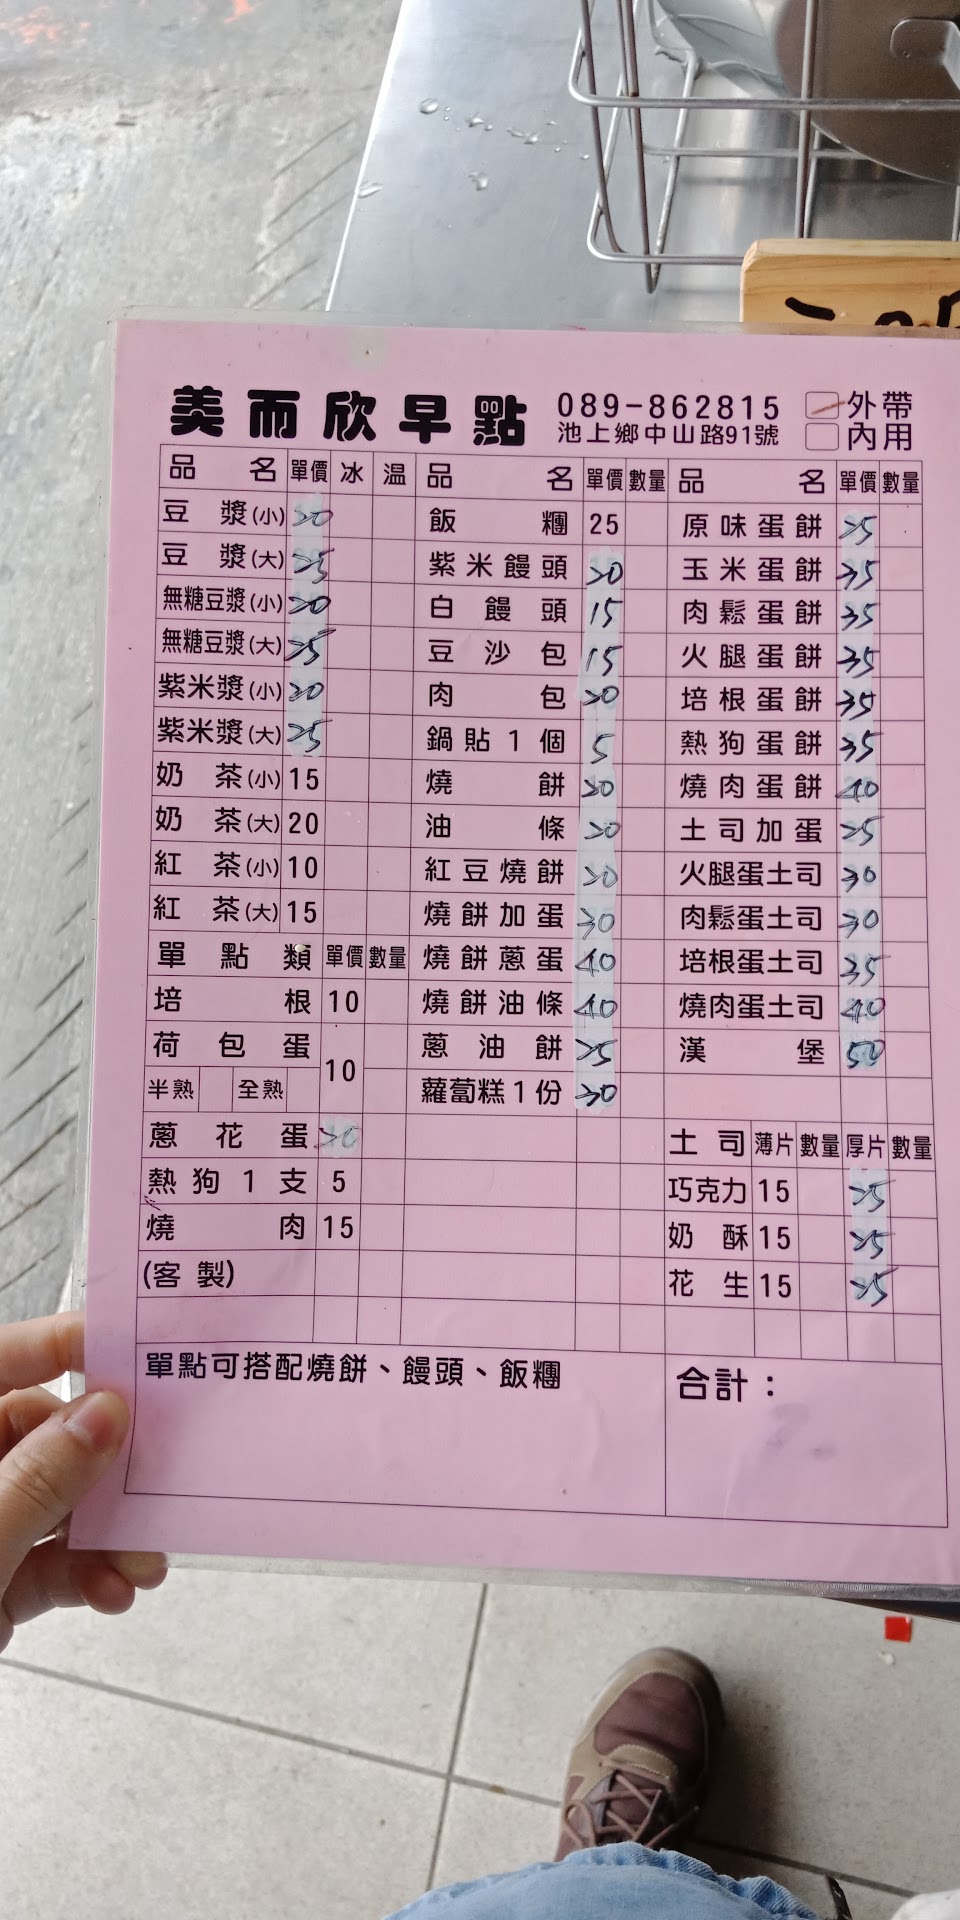 美而欣早點 089-862815 外帶
池上鄉中山路91號 內用
品名 單價 冰 温 品名 單價 數量 品名 單價 數量
豆漿(小) 20 飯糰 25 原味蛋餅 25
豆漿(大) 25 紫米饅頭 20 玉米蛋餅 35
無糖豆漿(小) 20 白饅頭 15 肉鬆蛋餅 35
無糖豆漿(大) 25 豆沙包 15 火腿蛋餅 35
紫米漿(小) 20 肉包 20 培根蛋餅 35
紫米漿(大) 25 鍋貼1個 5 熱狗蛋餅 35
奶茶(小) 15 燒餅 20 燒肉蛋餅 40
奶茶(大) 20 油條 20 土司加蛋 25
紅茶(小) 10 紅豆燒餅 20 火腿蛋土司 30
紅茶(大) 15 燒餅加蛋 30 肉鬆蛋土司 30
單點類 單價 數量 燒餅蔥蛋 40 培根蛋土司 35
培根 10 燒餅油條 40 燒肉蛋土司 40
荷包蛋 10 蔥油餅 25 漢堡 50
半熟 全熟 蘿蔔糕1份 30
蔥花蛋 20 土司 薄片 數量 厚片 數量
熱狗1支 5 巧克力 15 25
燒肉 15 奶酥 15 25
(客製) 花生 15 25
單點可搭配燒餅、饅頭、飯糰 合計：